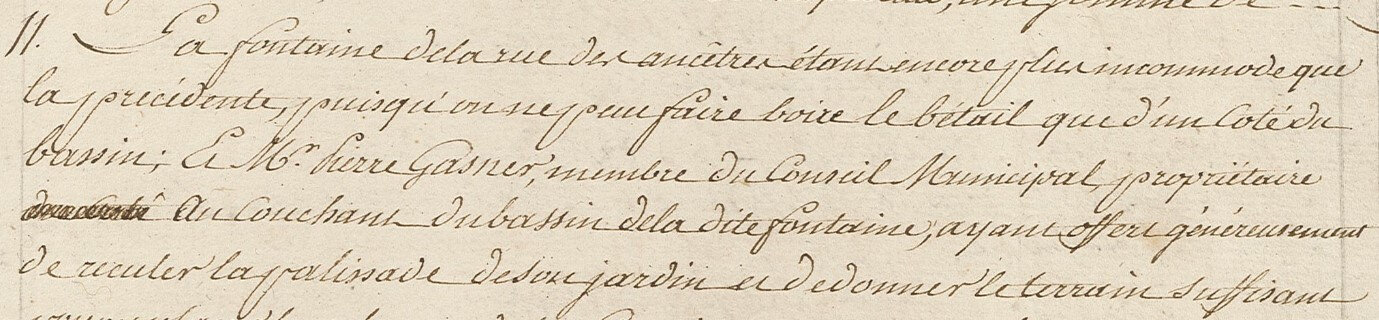 11. La fontaine de la rue des ancêtres étant encore plus incommode que
la précédente, puisqu'on ne peut faire boire le bétail que d'un Coté du
bassin; Et Mr. Pierre Gasner, membre du Conseil Municipal, propriétaire
Au Couchant du bassin de la dite fontaine, ayant offert généreusement
de reculer la palissade de son jardin et de donner le terrain suffisant